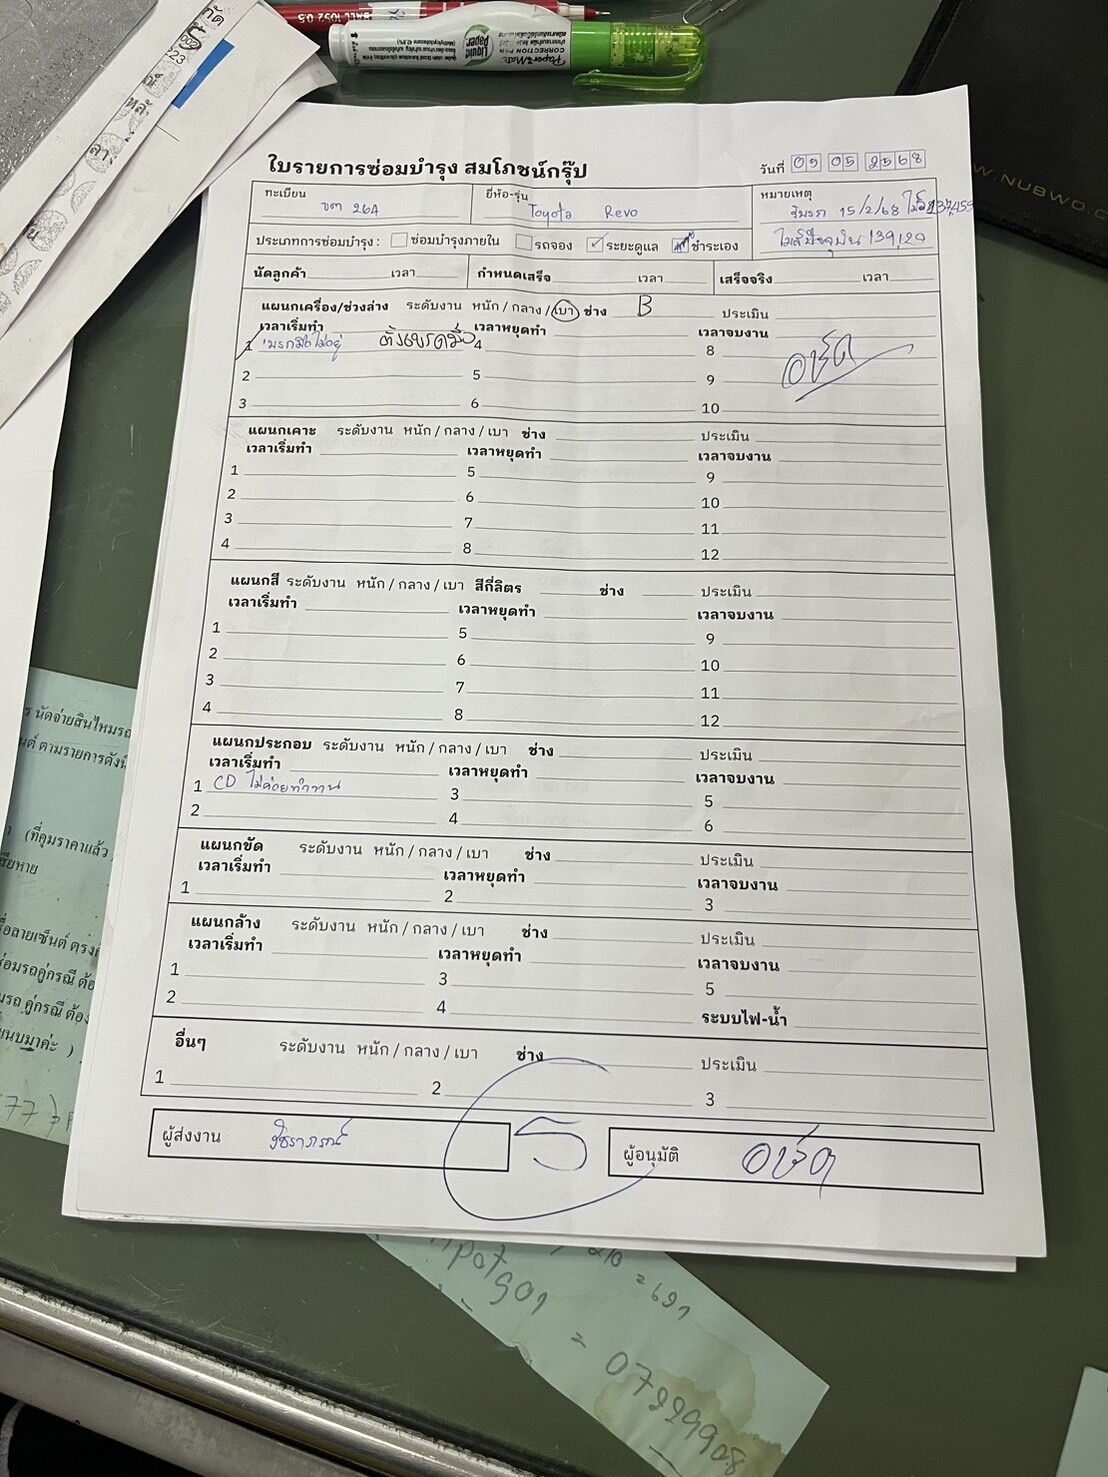 Liquid Paper
Paper Mate
CORRECTION PEN
ใบรายการซ่อมบำรุง สมโภชน์กรุ๊ป
วันที่ 09 05 2568
ทะเบียน ขต 264
ยี่ห้อ-รุ่น Toyota Revo
หมายเหตุ
15/2/68
139,120
ประเภทการซ่อมบำรุง : ซ่อมบำรุงภายใน รถจอง ระยะดูแล ชำระเอง
นัดลูกค้า เวลา กำหนดเสร็จ เวลา เสร็จจริง เวลา
แผนกเครื่อง/ช่วงล่าง ระดับงาน หนัก / กลาง / เบา ช่าง B ประเมิน
เวลาเริ่มทำ เวลาหยุดทำ เวลาจบงาน
1 เบรกมือไม่อยู่ ตั้งเบรคมือ 4 8
2 5 9
3 6 10
แผนกเคาะ ระดับงาน หนัก / กลาง / เบา ช่าง ประเมิน
เวลาเริ่มทำ เวลาหยุดทำ เวลาจบงาน
1 5 9
2 6 10
3 7 11
4 8 12
แผนกสี ระดับงาน หนัก / กลาง / เบา สีกี่ลิตร ช่าง ประเมิน
เวลาเริ่มทำ เวลาหยุดทำ เวลาจบงาน
1 5 9
2 6 10
3 7 11
4 8 12
แผนกประกอบ ระดับงาน หนัก / กลาง / เบา ช่าง ประเมิน
เวลาเริ่มทำ เวลาหยุดทำ เวลาจบงาน
1 CD ไม่ค่อยทำงาน 3 5
2 4 6
แผนกขัด ระดับงาน หนัก / กลาง / เบา ช่าง ประเมิน
เวลาเริ่มทำ เวลาหยุดทำ เวลาจบงาน
1 2 3
แผนกล้าง ระดับงาน หนัก / กลาง / เบา ช่าง ประเมิน
เวลาเริ่มทำ เวลาหยุดทำ เวลาจบงาน
1 3 5
2 4 ระบบไฟ-น้ำ
อื่นๆ ระดับงาน หนัก / กลาง / เบา ช่าง ประเมิน
1 2 3
ผู้ส่งงาน
5
ผู้อนุมัติ
นัดจ่ายสินไหมรถ
ตามรายการดังนี้
(ที่คุมราคาแล้ว
= 691